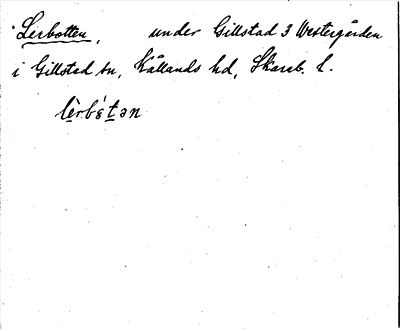 Lerbotten, under Gillstad 3 Westergården
i Gillstad sn, Kållands hd, Skarab. l.
lèrbśtən